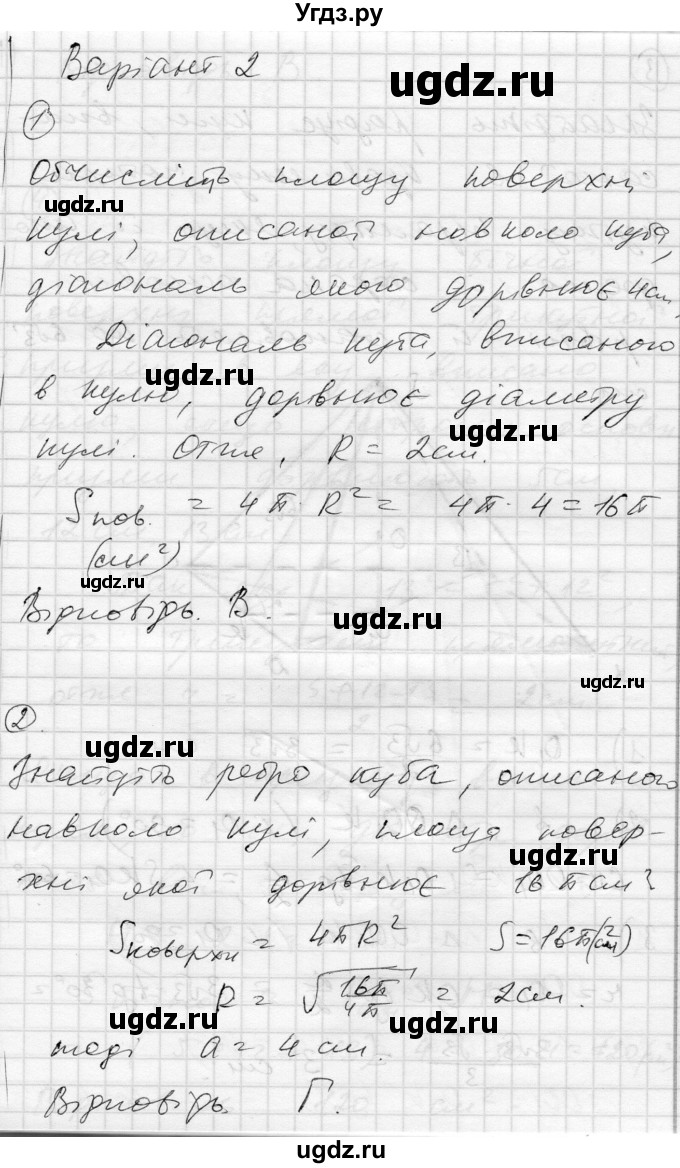 Угдз.ру
Варіант 2
ugdz.ru
1
Обчисліть площу поверхні
ugdz.ru
кулі, описаної навколо куба,
діагональ якого дорівнює 4см.
Діагональ куба, вписаного
ugdz.ru
в кулю, дорівнює діаметру
ugdz.ru
кулі. Отже, R = 2см.
Sпов. = 4π · R² = 4π · 4 = 16π
(см²)
ugdz.ru
Відповідь. В.
ugdz.ru
ugdz.ru
2
ugdz.ru
Знайдіть ребро куба, описаного
навколо кулі, площа повер-
ugdz.ru
хні якої дорівнює 16π см²
Sповерхн = 4πR² S = 16π(см²)
R = √16π/4π = 2см.
ugdz.ru
ugdz.ru
тоді a = 4 см.
Відповідь Г.
ugdz.ru